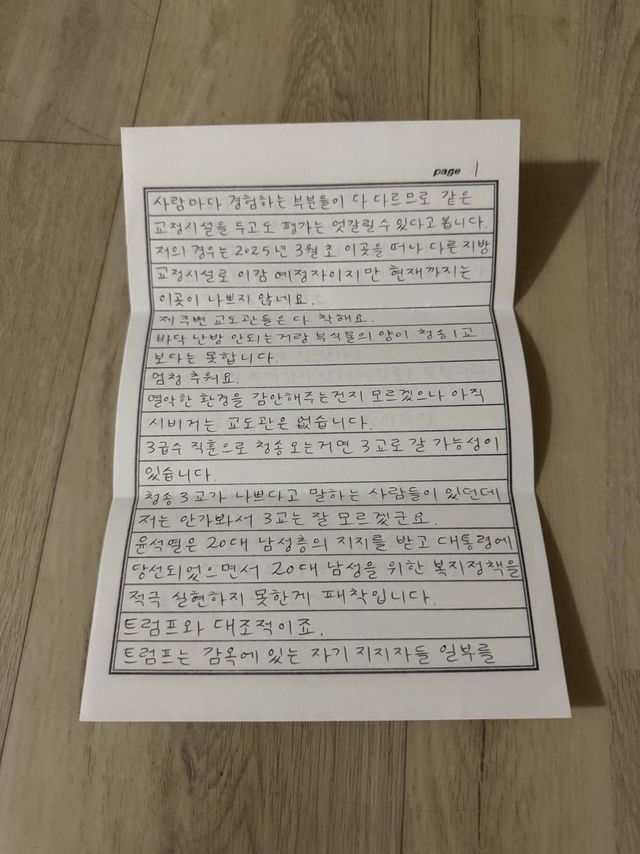 page 1
사람마다 경험하는 부분들이 다 다르므로 같은
교정시설을 두고도 평가는 엇갈릴 수 있다고 봅니다.
저의 경우는 2025년 3월 초 이곳을 떠나 다른 지방
교정시설로 이감 예정자이지만 현재까지는
이곳이 나쁘지 않네요.
제 주변 교도관들은 다 착해요.
바닥 난방 안되는거랑 부식물의 양이 청송1교
보다는 못합니다.
엄청 추워요.
열악한 환경을 감안해주는건지 모르겠으나 아직
시비거는 교도관은 없습니다.
3급수 직훈으로 청송 오는거면 3교로 갈 가능성이
있습니다.
청송 3교가 나쁘다고 말하는 사람들이 있던데
저는 안가봐서 3교는 잘 모르겠군요.
윤석열은 20대 남성층의 지지를 받고 대통령에
당선되었으면서 20대 남성을 위한 복지정책을
적극 실현하지 못한게 패착입니다.
트럼프와 대조적이죠.
트럼프는 감옥에 있는 자기 지지자들 일부를